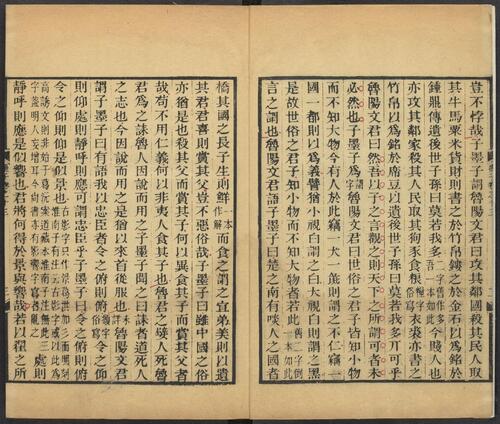 豈不悖哉子墨子謂魯陽文君曰攻其鄰國殺其民人取
其牛馬粟米貨財則書之於竹帛鏤之於金石以爲銘於
鍾鼎傳遺後世子孫曰莫若我多二字舊作多吾一本如此今賤人也
亦攻其鄰家殺其人民取其狗豕食糧俗寫衣裘亦書之
竹帛以爲銘於席豆以遺後世子孫曰莫若我多丌可乎
魯陽文君曰然吾以子之言觀之則天下之所謂可者未
必然也子墨子爲謂字魯陽文君曰世俗之君子皆知小物
而不知大物今有人於此竊一犬一彘則謂之不仁竊一
國一都則以爲義譬猶小視白謂之白大視白則謂之黑
是故世俗之君子知小物而不知大物者若此舊二字倒一本如此
言之謂也魯陽文君語子墨子曰楚之南有啖人之國者
橋其國之長子生則鮮一本作解而食之謂之宜弟美則以遺
其君君喜則賞其父豈不惡俗哉子墨子曰雖中國之俗
亦猶是也殺其父而賞其子何以異食其子而賞其父者
哉苟不用仁義何以非夷人食其子也魯君之嬖人死魯
君爲之誄魯人因說而用之子墨子聞之曰誄者道死人
之志也今因說而用之是猶以來首從服也魯陽文君
謂子墨子曰有語我以忠臣者令之俯則俯令之仰
則仰處則靜呼則應可謂忠臣乎子墨子曰令之俯則俯
令之仰則仰是似景也古影字只作景處則
靜呼則應是似響也君將何得於景與響哉若以翟之所